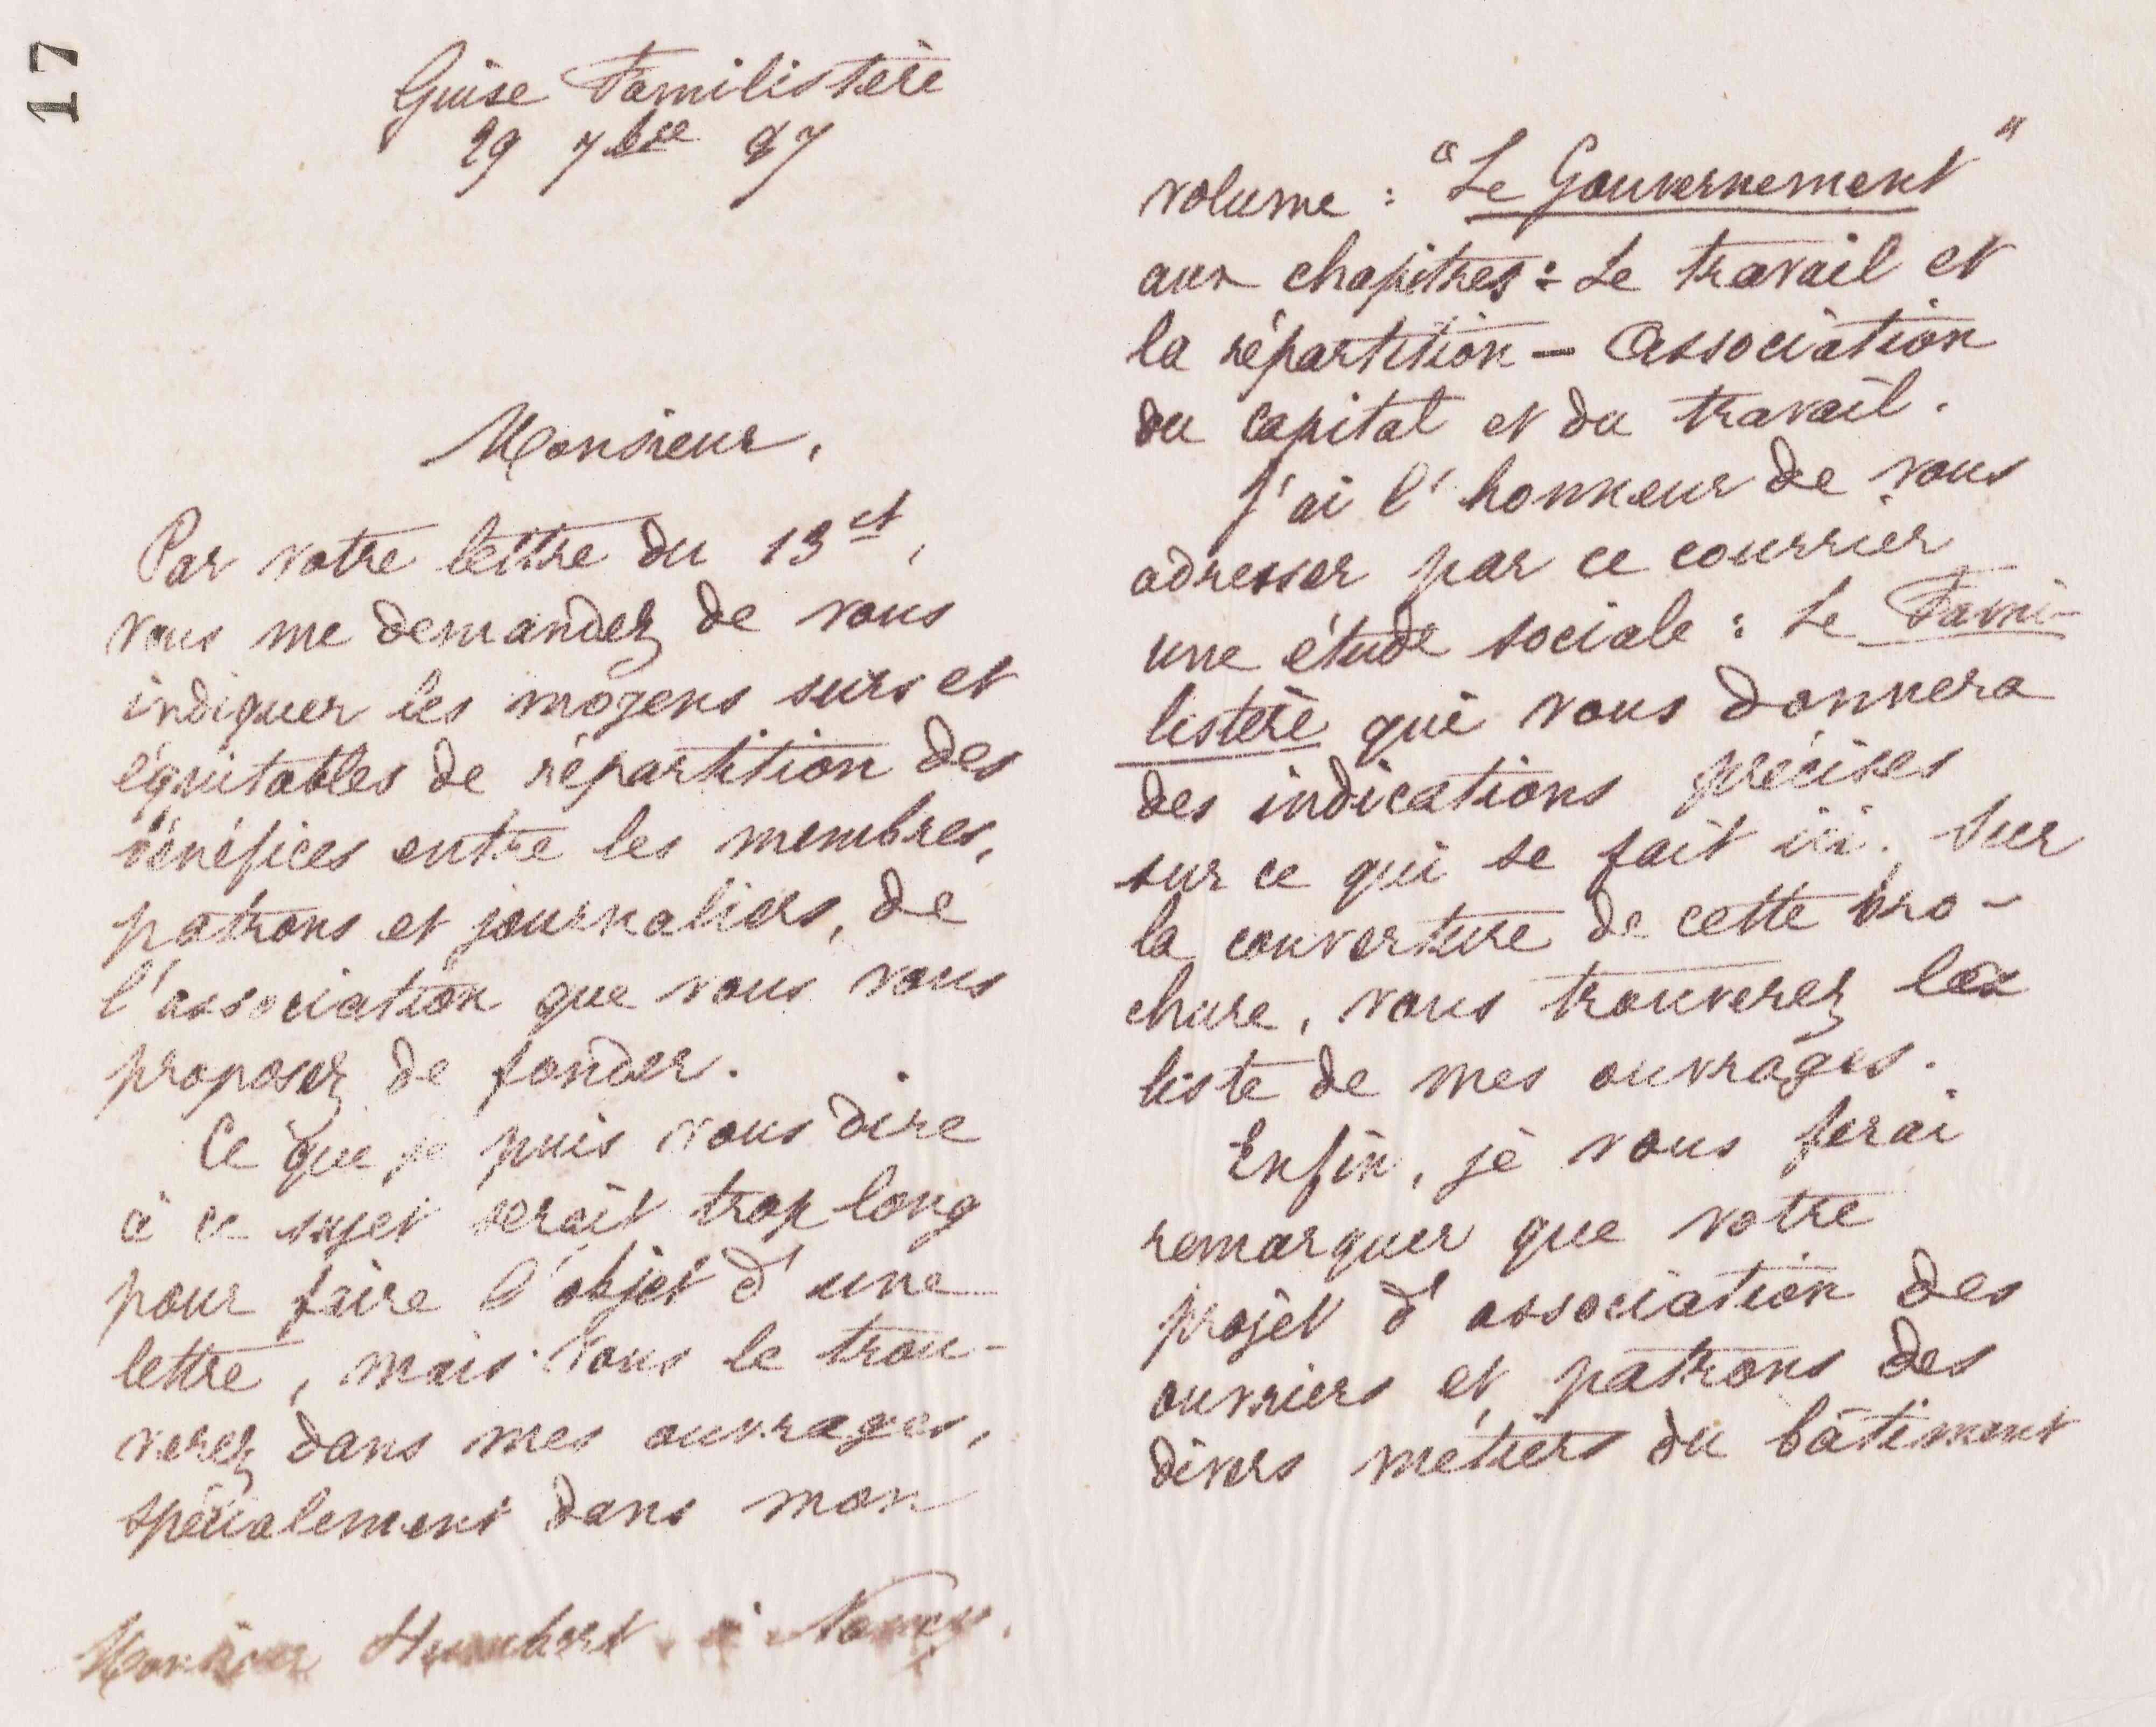 17
Guise Familistère
29 7bre 87
Monsieur,
Par votre lettre du 13 ct,
vous me demandez de vous
indiquer les moyens surs et
équitables de répartition des
bénéfices entre les membres,
patrons et journaliers, de
l'association que vous vous
proposez de fonder.
Ce que je puis vous dire
à ce sujet serait trop long
pour faire l'objet d'une
lettre, mais vous le trou-
verez dans mes ouvrages,
spécialement dans mon
Monsieur Humbert à Nancy.
volume : "Le Gouvernement"
aux chapitres : Le travail et
la répartition — Association
du capital et du travail.
J'ai l'honneur de vous
adresser par ce courrier
une étude sociale : Le Fami-
listère qui vous donnera
des indications précises
sur ce qui se fait ici. Sur
la couverture de cette bro-
chure, vous trouverez la
liste de mes ouvrages.
Enfin, je vous ferai
remarquer que votre
projet d'association des
ouvriers et patrons des
divers métiers du bâtiment